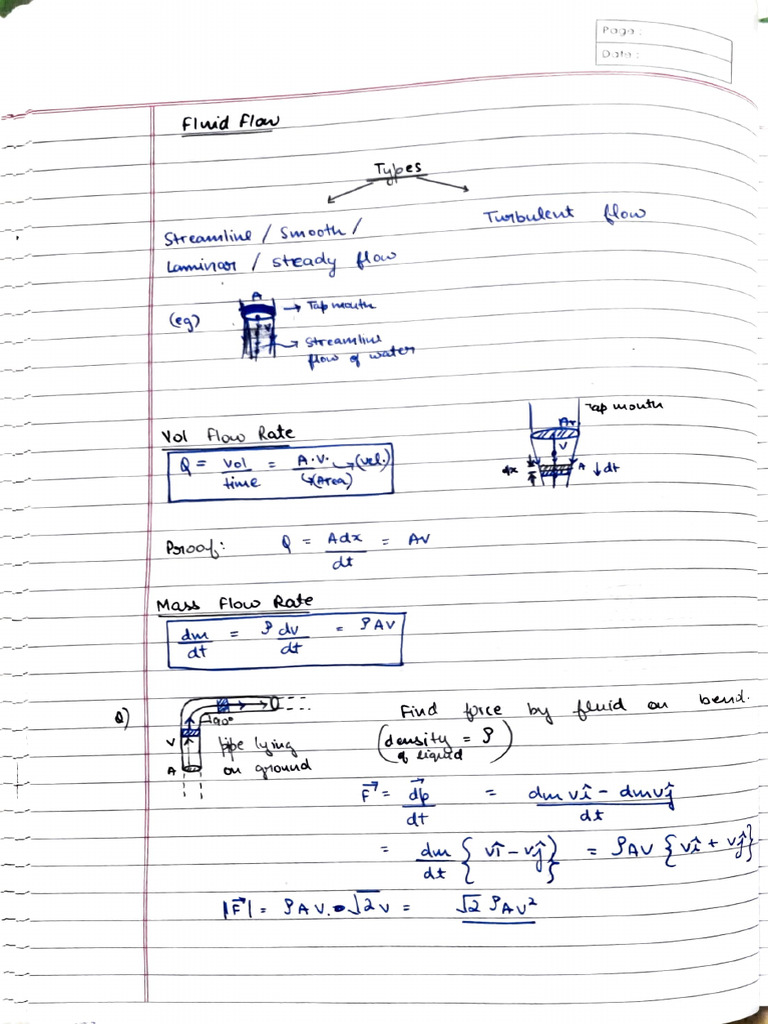 Page :
Date :
Fluid Flow
Types
Streamline / Smooth /
Laminar / steady flow
Turbulent flow
(eg)
A
→ Tap mouth
v
→ Streamline
flow of water
Vol Flow Rate
Q = vol/time = A.V. → (vel.)
↳ (Area)
Tap mouth
A₁
V
dx
A ↓ dt
Proof: Q = Adx/dt = AV
Mass Flow Rate
dm/dt = ρ dv/dt = ρAV
Q)
90°
V
A
pipe lying
on ground
Find force by fluid on bend.
(density = ρ)
of liquid
F⃗ = d⃗p/dt = dm vî - dmvĵ/dt
= dm/dt { vî - vĵ } = ρAV { vî + vĵ }
|F⃗| = ρAV. √2 v = √2 ρAv²